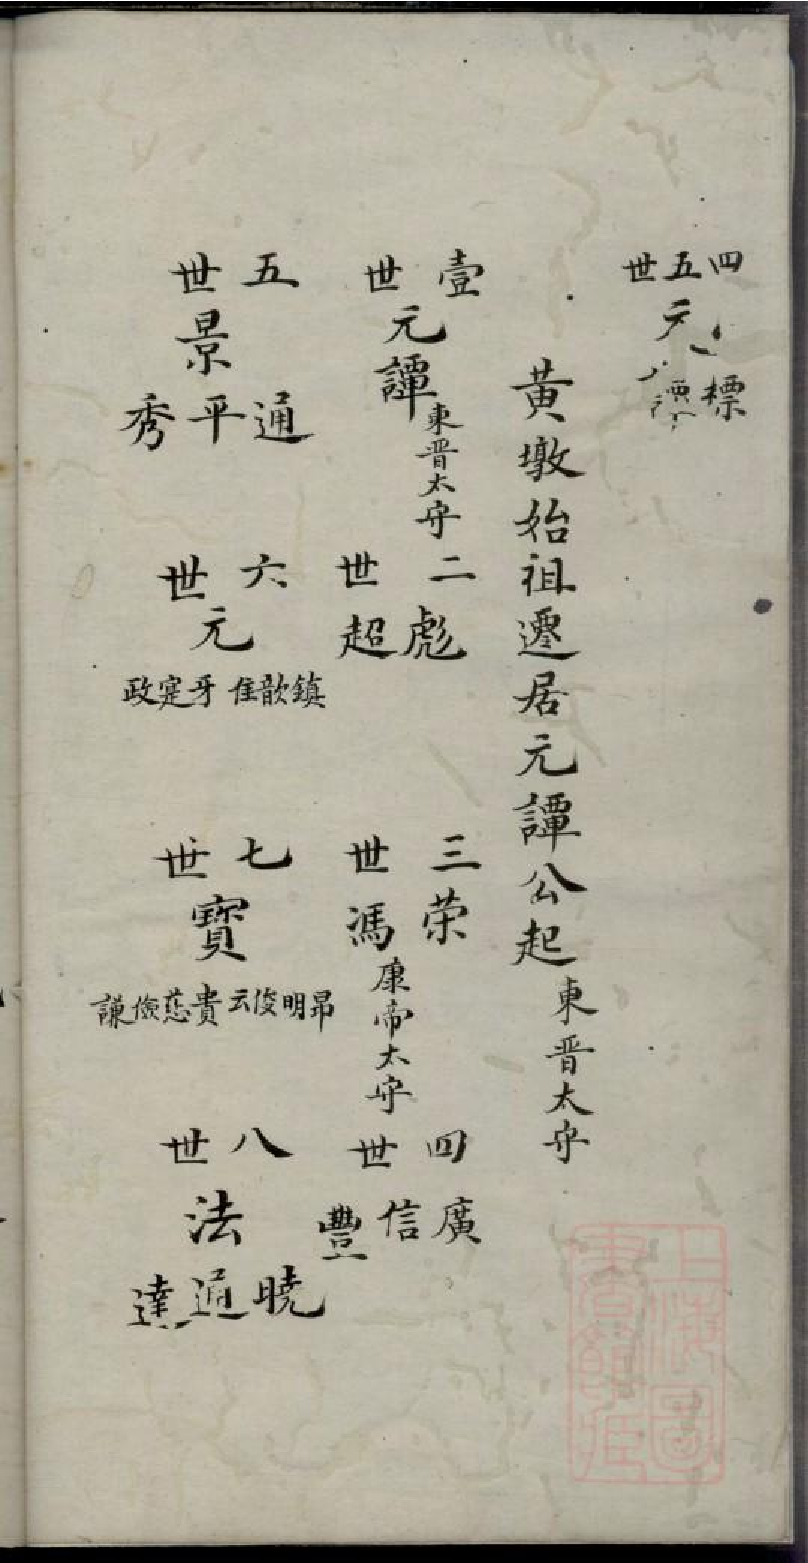 四五世
元
標
譚
黃墩始祖遷居元譚公起
東晋太守
壹世
元譚
東晋太守
二世
彪超
三世
荣馮
康帝太守
四世
廣信豐
五世
景
通平秀
六世
元
鎮歆隹牙寔政
七世
寶
昂明俊云貴慈儉謙
八世
法
曉通達
上海圖書館藏